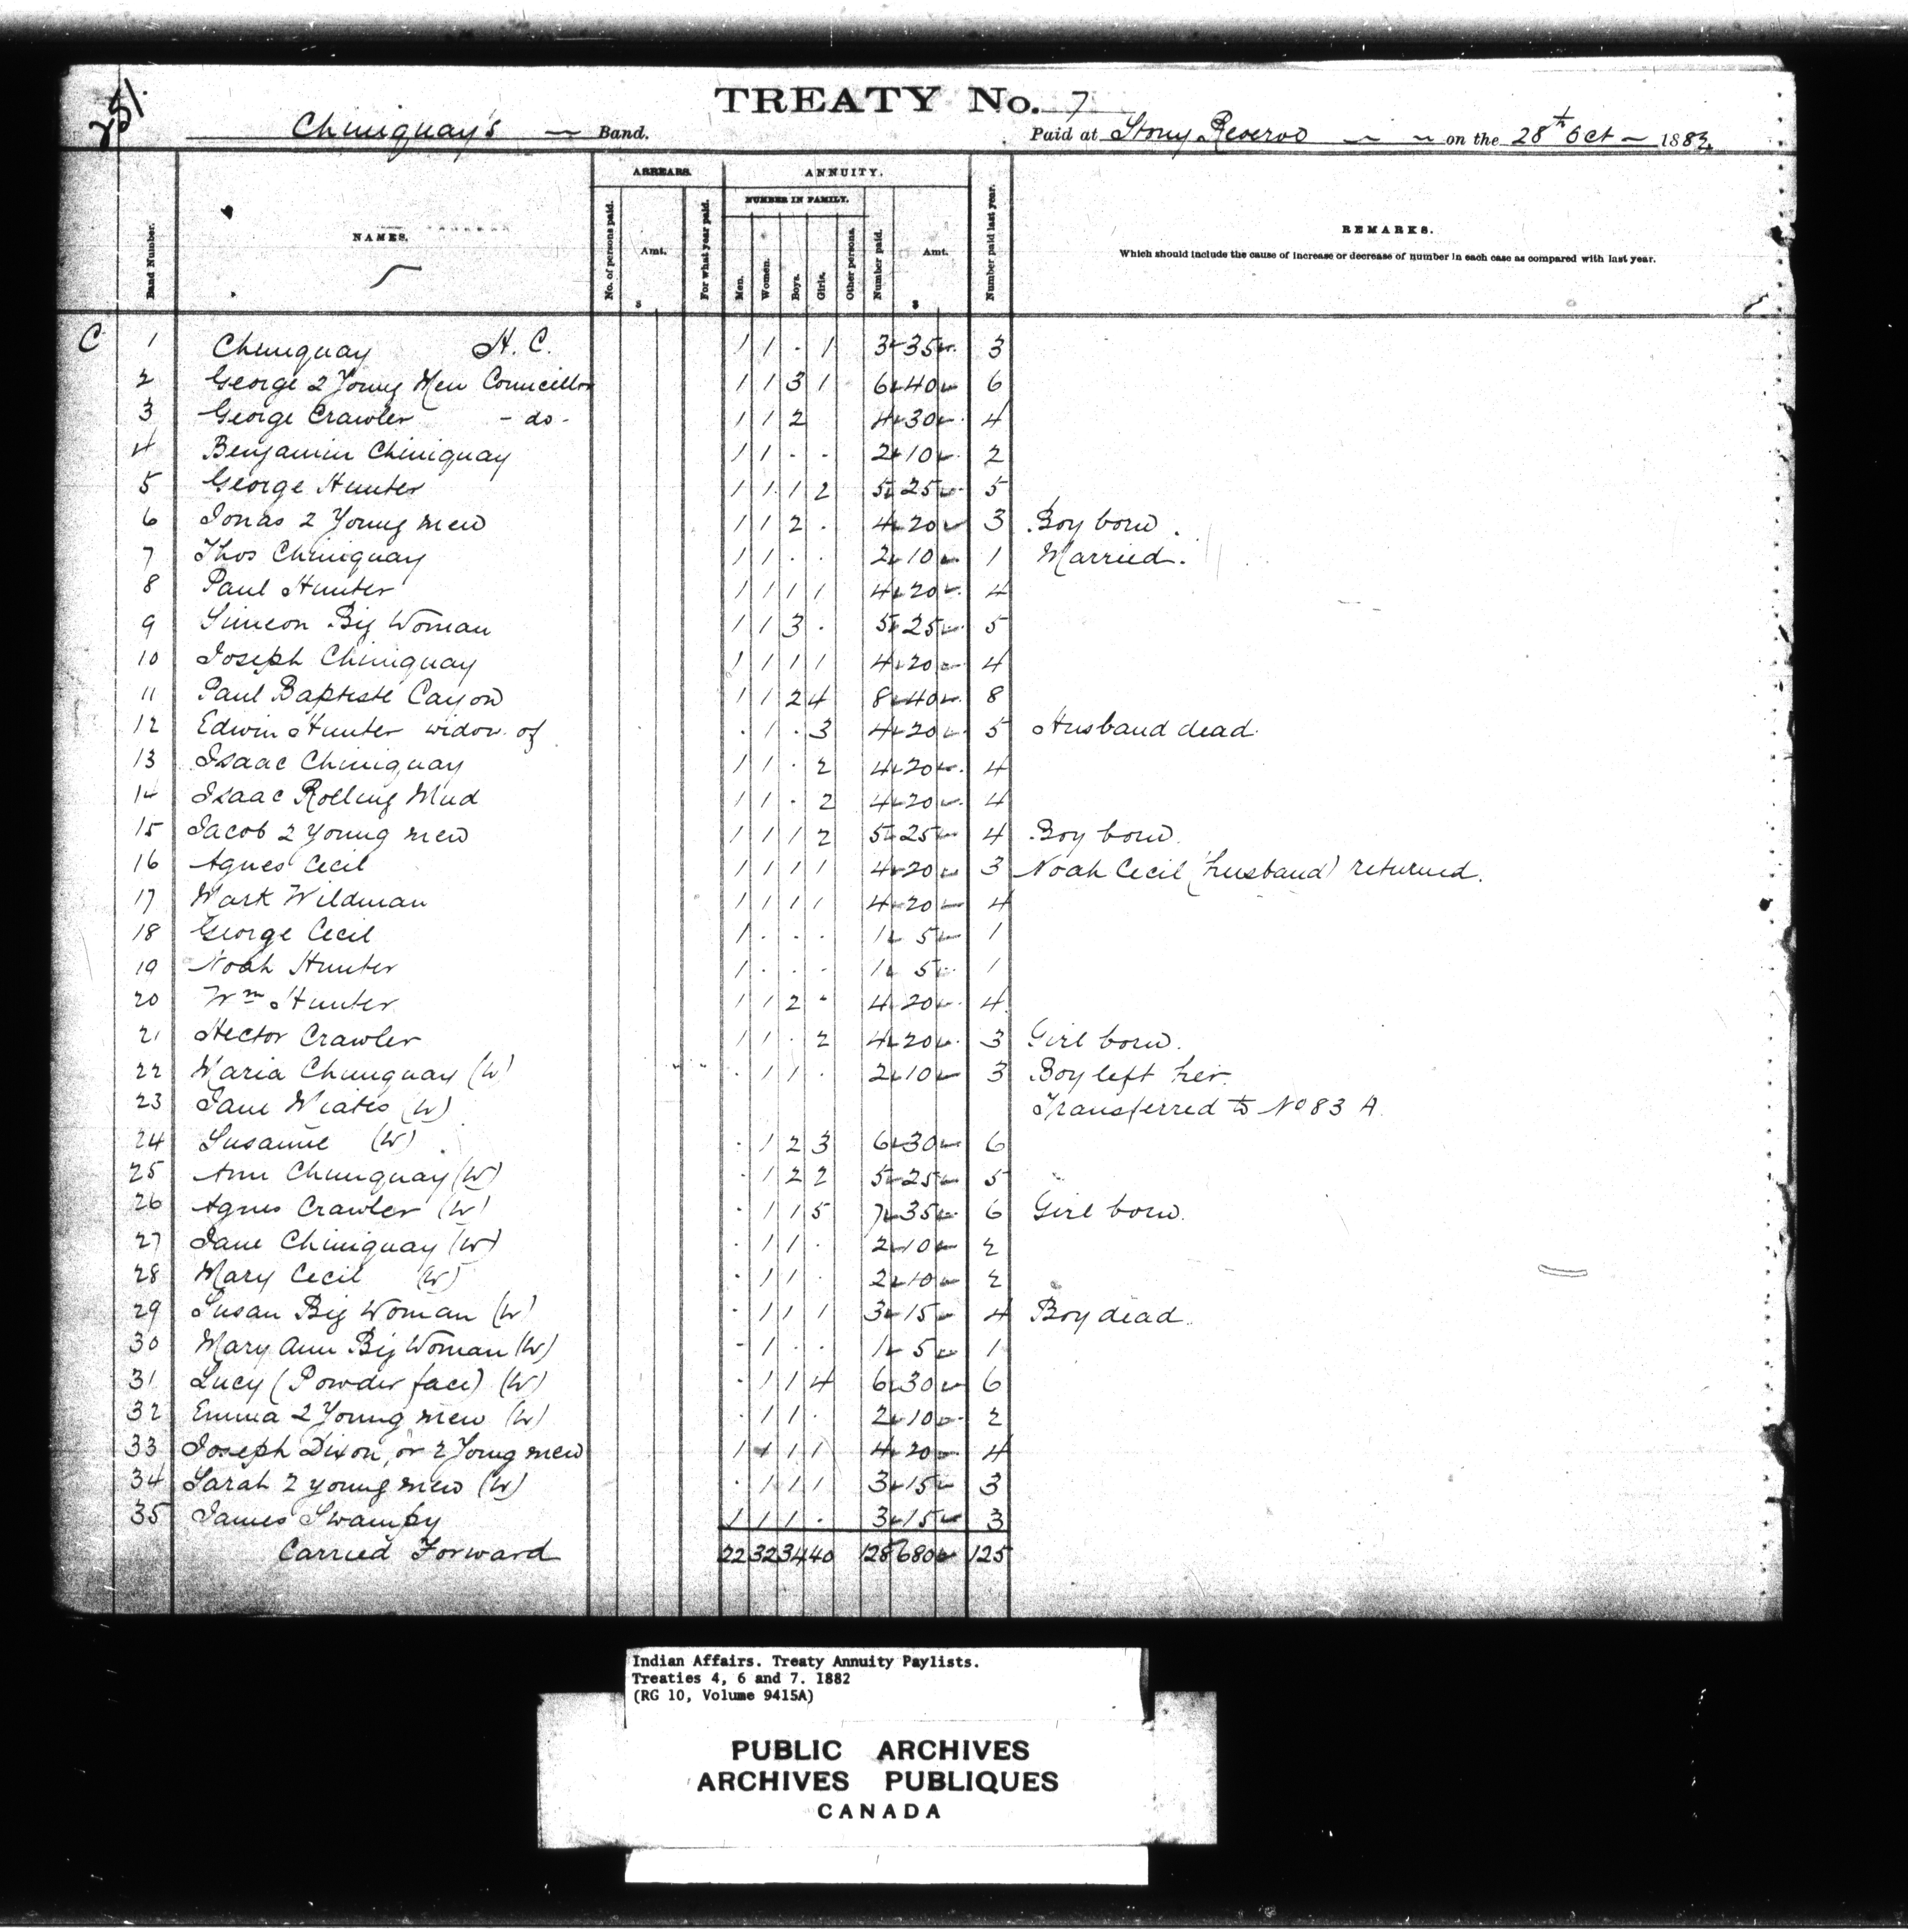 251.
TREATY No. 7
Chiniquay's Band. Paid at Stony Reserve on the 28th Oct 1882.
Band Number. NAMES. ARREARS. No. of persons paid. Amt. $ For what year paid. ANNUITY. NUMBER IN FAMILY. Men. Women. Boys. Girls. Other persons. Number paid. Amt. $ Number paid last year. REMARKS.
Which should include the cause of increase or decrease of number in each case as compared with last year.
C 1 Chiniquay H. C. 1 1 . 1 3 35 3
2 George 2 Young Men Councillor 1 1 3 1 6 40 6
3 George Crawler - do - 1 1 2 4 30 4
4 Benjamin Chiniquay 1 1 . . 2 10 2
5 George Hunter 1 1 1 2 5 25 5
6 Jonas 2 Young men 1 1 2 . 4 20 3 Boy born.
7 Thos Chiniquay 1 1 . . 2 10 1 Married.
8 Paul Hunter 1 1 1 1 4 20 4
9 Simeon Big Woman 1 1 3 . 5 25 5
10 Joseph Chiniquay 1 1 1 1 4 20 4
11 Paul Baptiste Cayon 1 1 2 4 8 40 8
12 Edwin Hunter widow of . 1 . 3 4 20 5 Husband dead.
13 Isaac Chiniquay 1 1 . 2 4 20 4
14 Isaac Rolling Mud 1 1 . 2 4 20 4
15 Jacob 2 Young men 1 1 1 2 5 25 4 Boy born.
16 Agnes Cecil 1 1 1 1 4 20 3 Noah Cecil (husband) returned.
17 Mark Wildman 1 1 1 1 4 20 4
18 George Cecil 1 . . . 1 5 1
19 Noah Hunter 1 . . . 1 5 1
20 Wm Hunter 1 1 2 . 4 20 4
21 Hector Crawler 1 1 . 2 4 20 3 Girl born.
22 Maria Chiniquay (W) . 1 1 . 2 10 3 Boy left her.
23 Jane (W) Transferred to No 83 A.
24 Susanne (W) . 1 2 3 6 30 6
25 Ann Chiniquay (W) . 1 2 2 5 25 5
26 Agnes Crawler (W) . 1 1 5 7 35 6 Girl born.
27 Jane Chiniquay (W) . 1 1 . 2 10 2
28 Mary Cecil (W) . 1 1 . 2 10 2
29 Susan Big Woman (W) . 1 1 1 3 15 4 Boy dead.
30 Mary Ann Big Woman (W) - 1 . . 1 5 1
31 Lucy (Powder face) (W) . 1 1 4 6 30 6
32 Emma 2 Young men (W) . 1 1 . 2 10 2
33 Joseph Dixon, or 2 Young men 1 1 1 1 4 20 4
34 Sarah 2 young men (W) . 1 1 1 3 15 3
35 James Swampy 1 1 1 . 3 15 3
Carried Forward 22 32 34 40 128 680 125
Indian Affairs. Treaty Annuity Paylists.
Treaties 4, 6 and 7. 1882
(RG 10, Volume 9415A)
PUBLIC ARCHIVES
ARCHIVES PUBLIQUES
CANADA